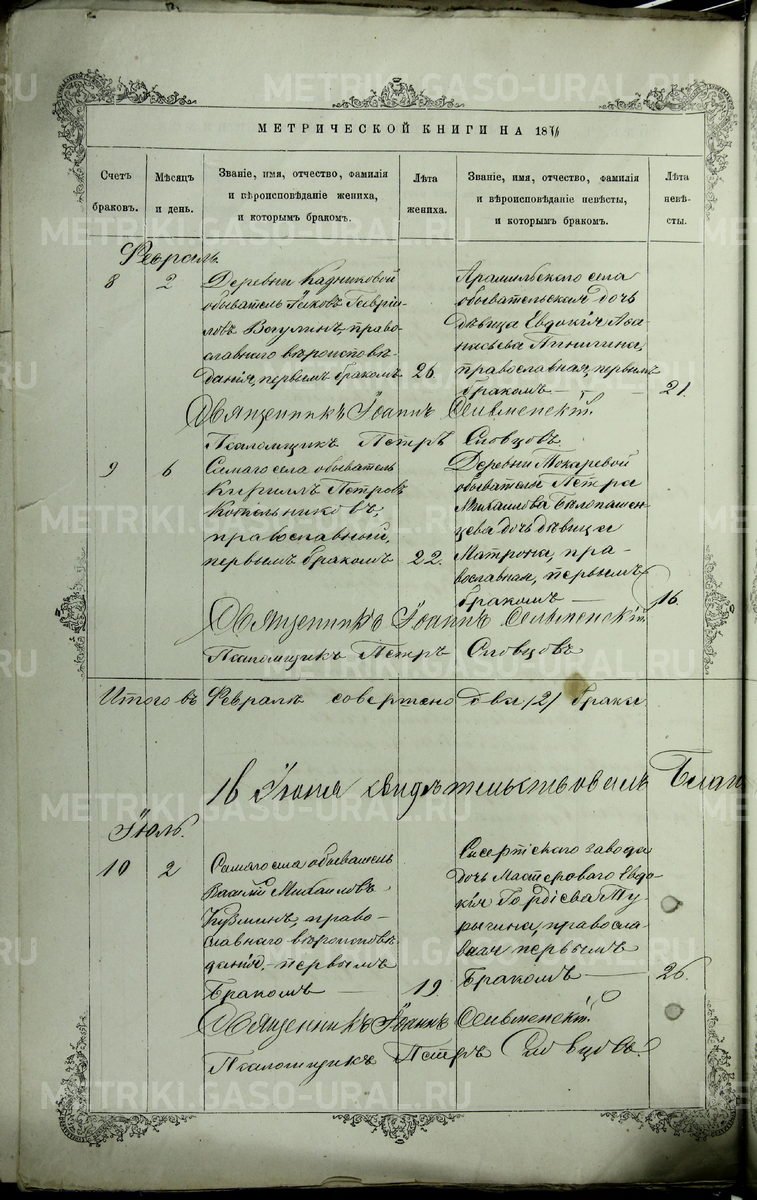 МЕТРИЧЕСКОЙ КНИГИ НА 1876
Счетъ браковъ.
Мѣсяцъ и день.
Званіе, имя, отчество, фамилія
и вѣроисповѣданіе жениха,
и которымъ бракомъ.
Лѣта жениха.
Званіе, имя, отчество, фамилія
и вѣроисповѣданіе невѣсты,
и которымъ бракомъ.
Лѣта невѣсты.
Февраль.
8 2
Деревни Кадниковой
обыватель Іаковъ Гаврiи-
ловъ Вогулинъ, право-
славнаго вѣроисповѣ-
данія, первымъ бракомъ 26.
Арамильскаго села
обывательская дочь
дѣвица Евдокія Аѳа-
насьева
православная, первымъ
бракомъ — 21.
Священникъ Іоаннъ
Псаломщикъ Петръ Словцовъ
9 6
Самаго села обыватель
Кириллъ Петровъ
Котельниковъ,
православный,
первымъ бракомъ 22.
Деревни Токаревой
обывателя Петра
Михаилова Бѣлопашен-
цева дочь дѣвица
Матрона, пра-
вославная, первымъ
бракомъ — 16.
Священникъ Іоаннъ
Псаломщикъ Петръ Словцовъ
Итого въ Февралѣ совершено два /2/ брака
16 свидѣтельствовалъ Благ
Іюль.
10 2
Самаго села обыватель
Василій Михаиловъ
Кузминъ, право-
славнаго вѣроисповѣ-
данія, первымъ
бракомъ — 19.
Сысертскаго завода
дочь Мастероваго Евдо-
кія Гордѣева Ту-
рыгина, правосла-
вная первымъ
бракомъ — 26.
Священникъ Іоаннъ
Псаломщикъ Петръ Словцовъ.
METRIKI.GASO-URAL.RU